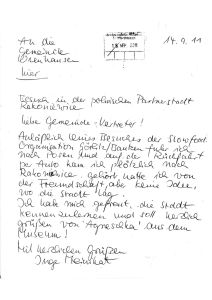 An die
Gemeinde
Drenhausen
hier
14.9.11
Besuch in der polnischen Partnerstadt
Rakoniewice
Liebe Gemeinde-Vertreter!
Anläßlich eines Besuches der Slowfood
Organisation Görlitz/Bautzen fuhr ich
nach Posen und auf der Rückfahrt
per Auto kam ich plötzlich nach
Rakoniewice. gehört hatte ich von
der Freundschaft, aber keine Idee,
wo die Stadt lag.
Ich hab mich gefreut, die Stadt
kennenzulernen und soll herzlich
grüßen von "Agneschka" aus dem
Museum!
Mit herzlichen Grüßen
Inge